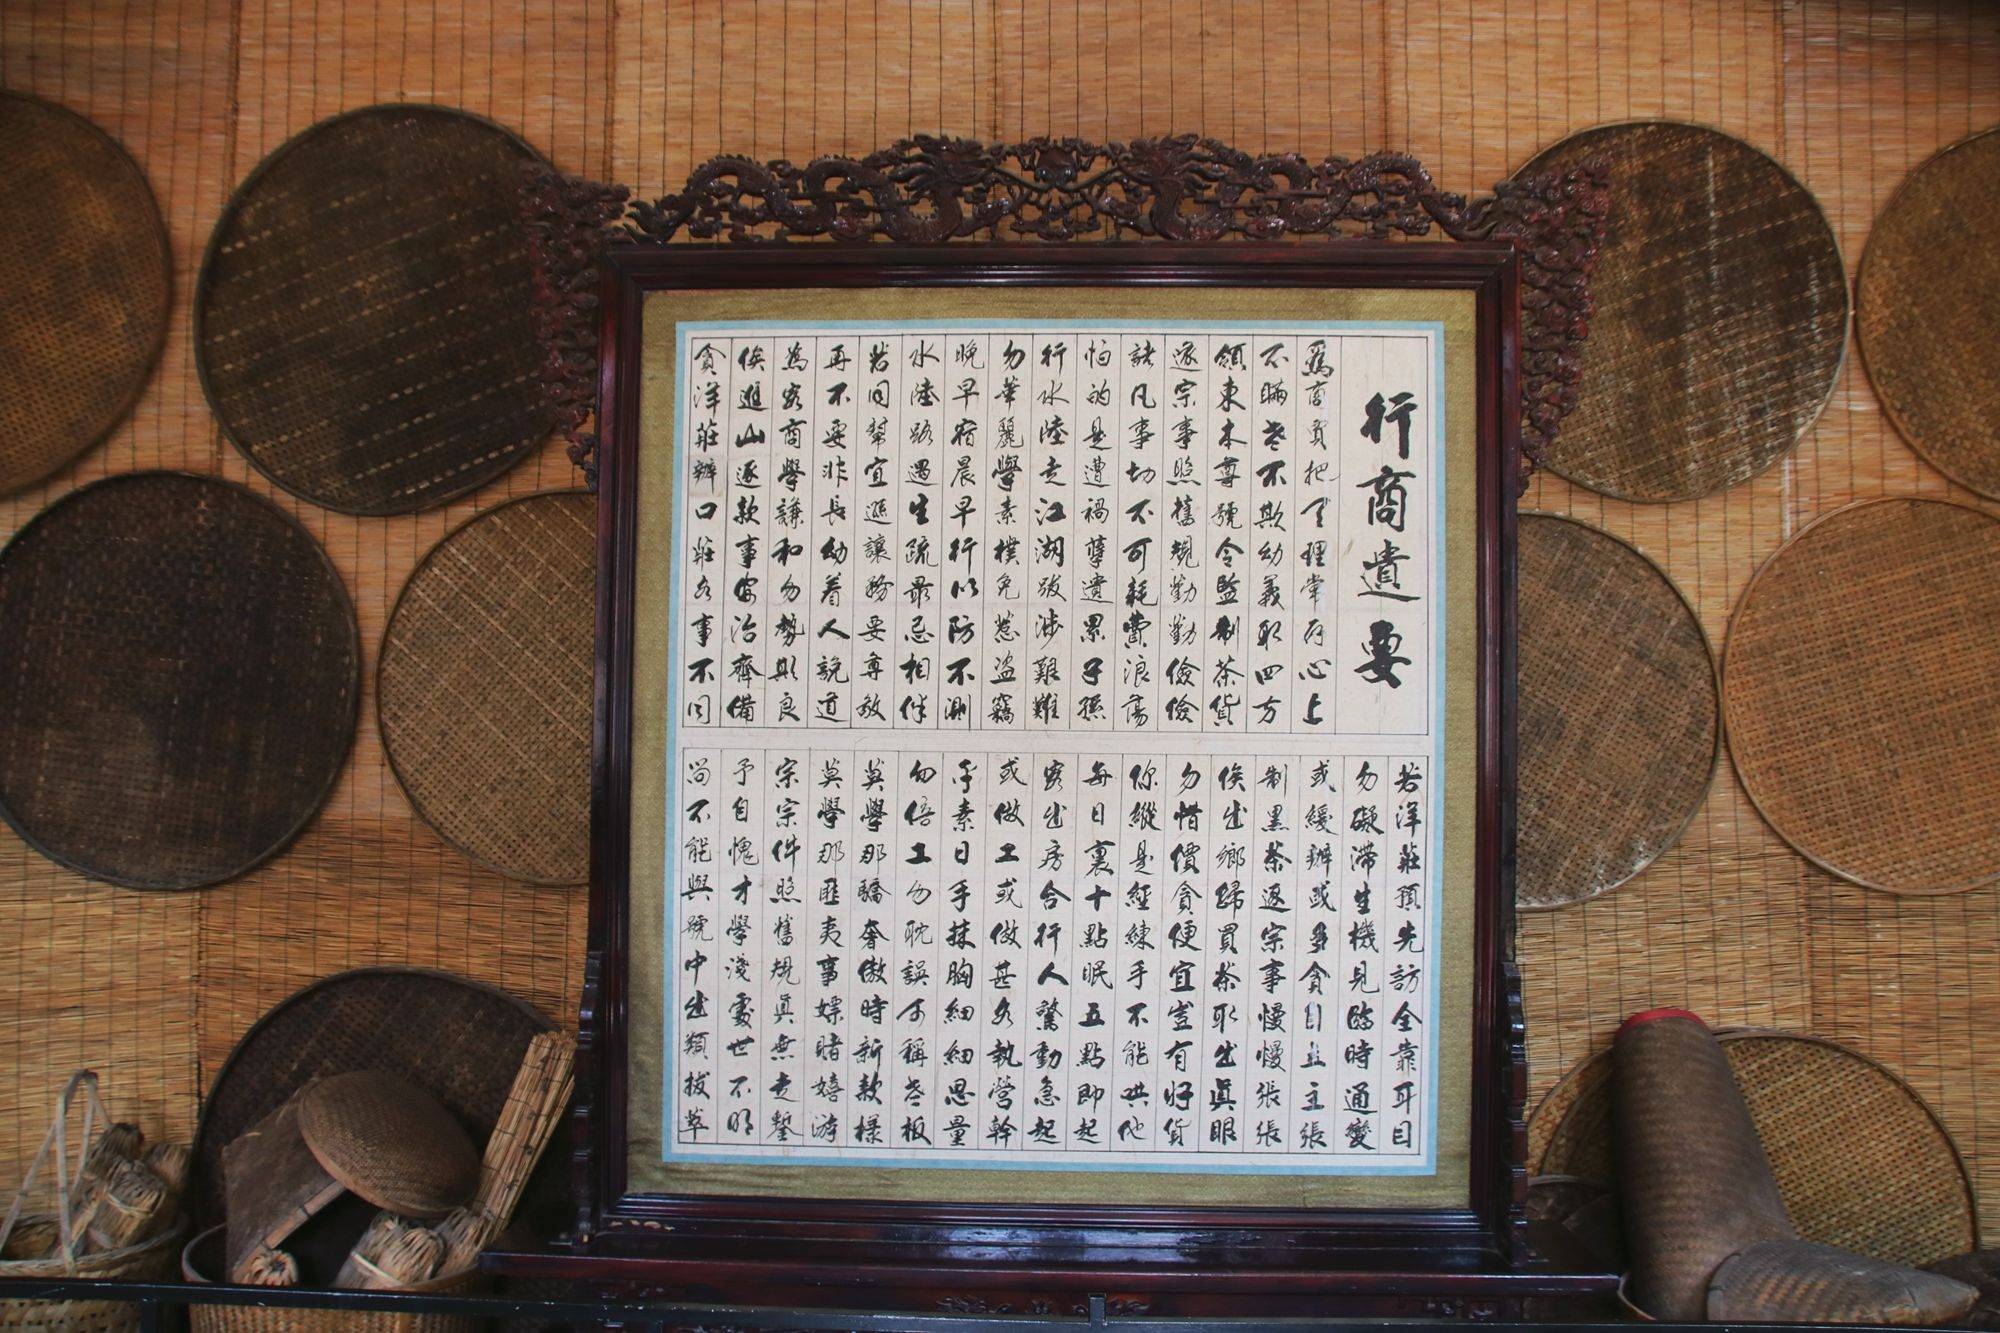 行商遺要
為商賈把天理常存心上
不瞞老不欺幼義取四方
領東本尊號令監制茶貨
逐宗事照舊規勤勤儉儉
諸凡事切不可耗費浪蕩
怕的是遭禍孽遺累子孫
行水陸走江湖跋涉艱難
勿華麗學素樸免惹盜竊
晚早宿晨早行以防不測
水陸路遇生疏最忌相伴
若同幫宜遜讓務要尊敬
再不要非長幼着人說道
為客商學謙和勿勢欺良
俟進山逐款事安治齊備
貪洋莊辦口莊各事不同
若洋莊預先訪全靠耳目
勿礙滯生機見臨時通變
或緩辦或多貪自立主張
制黑茶逐宗事慢慢張張
俟出鄉歸買茶取出真眼
勿惜價貪便宜豈有好貨
你縱是經練手不能哄他
每日裏十點眠五點即起
客出房合行人驚動急起
或做工或做甚各執營幹
乎素日手抹胸細細思量
勿倍工勿耽誤可稱老板
莫學那驕奢傲時新款樣
莫學那匪夷事嫖賭嬉游
宗宗件照舊規真無走蟄
予自愧才學淺處世不明
尚不能與號中出類拔萃